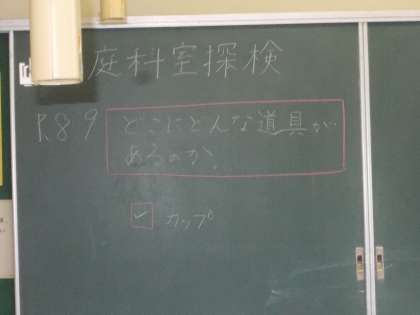 庭科室探検
P.89
どこにどんな道具が
あるのか。
✓ カップ